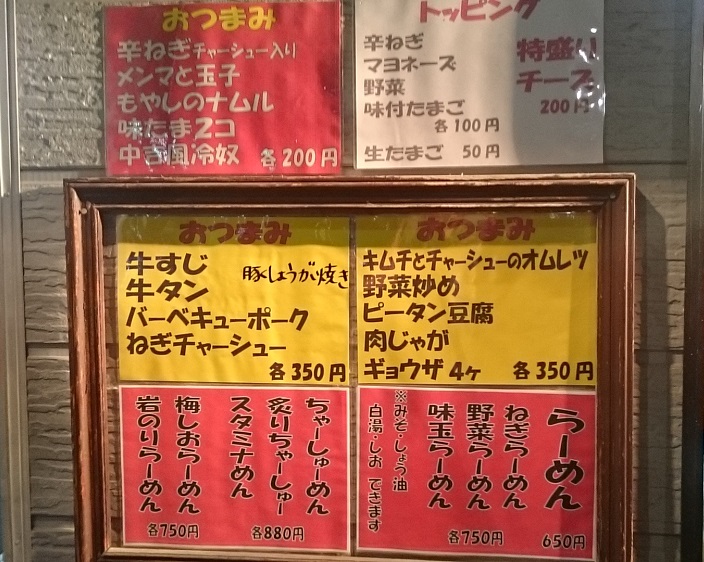 おつまみ
辛ねぎチャーシュー入り
メンマと玉子
もやしのナムル
味たま2コ
中吉風冷奴 各200円
トッピング
辛ねぎ
マヨネーズ
野菜
味付たまご
各100円
生たまご 50円
特盛り
チーズ
200円
おつまみ
牛すじ
豚しょうが焼き
牛タン
バーベキューポーク
ねぎチャーシュー
各350円
おつまみ
キムチとチャーシューのオムレツ
野菜炒め
ピータン豆腐
肉じゃが
ギョウザ4ヶ 各350円
らーめん
650円
ねぎらーめん
野菜らーめん
味玉らーめん
各750円
※みそ・しょう油
白湯・しお できます
ちゃーしゅーめん
炙りちゃーしゅー
スタミナめん
各880円
梅しおらーめん
岩のりらーめん
各750円